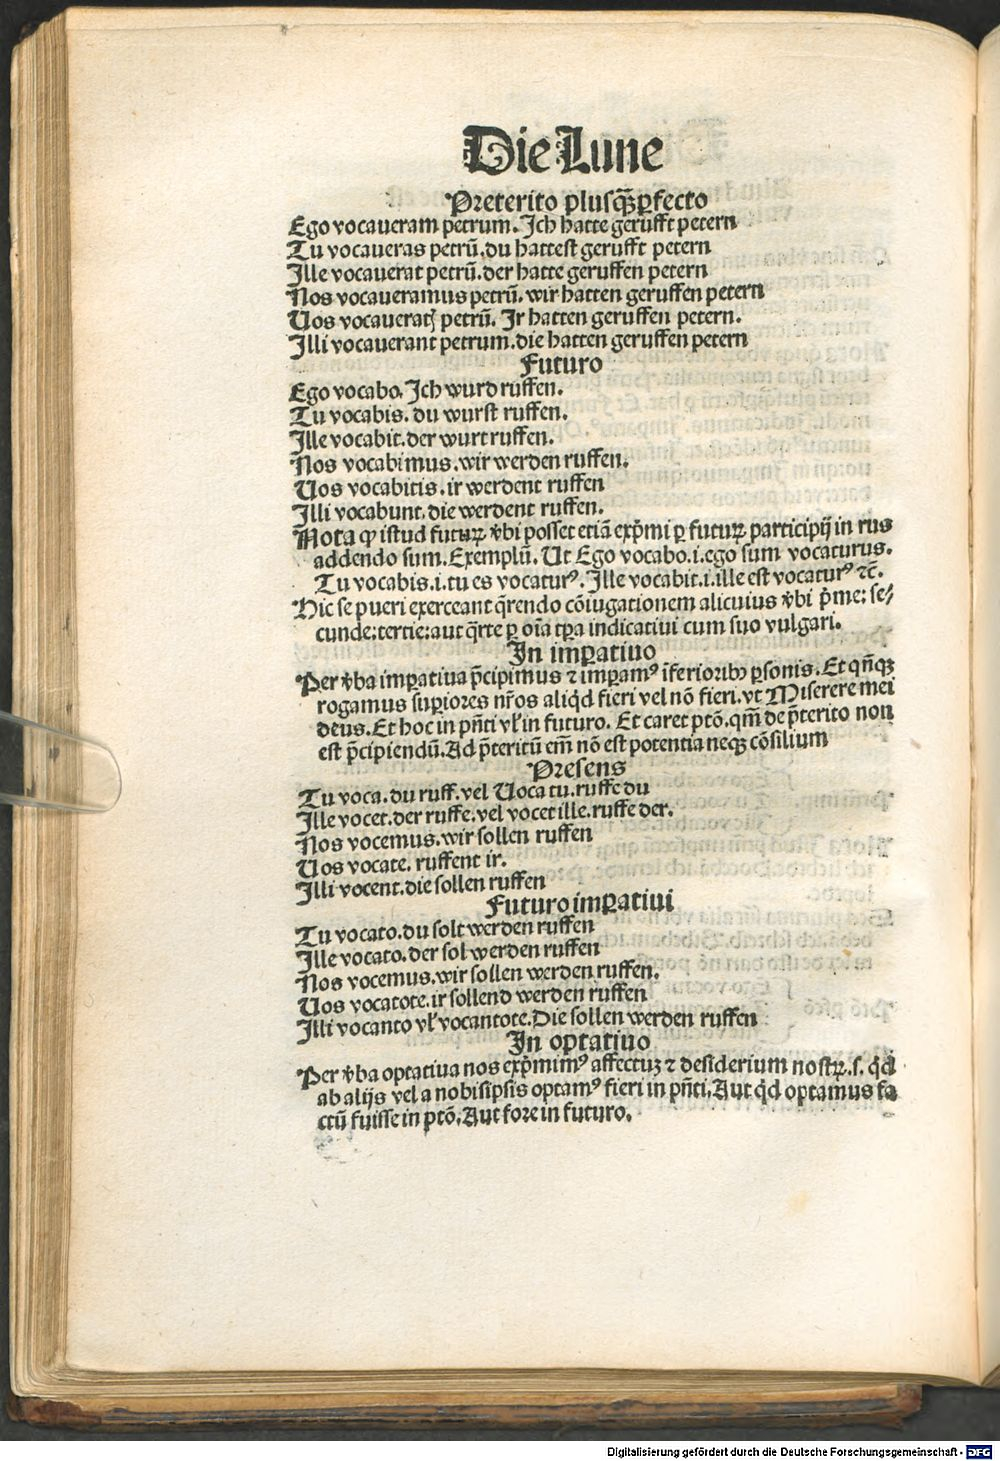 Die Lune
Preterito plusq̃ꝑfecto
Ego vocaueram petrum. Ich hatte gerufft petern
Tu vocaueras petrũ. du hattest gerufft petern
Ille vocauerat petrũ. der hatte geruffen petern
Nos vocaueramus petrũ. wir hatten geruffen petern
Uos vocaueratꝭ petrũ. Ir hatten geruffen petern.
Illi vocauerant petrum. die hatten geruffen petern
Futuro
Ego vocabo. Ich wurd ruffen.
Tu vocabis. du wurst ruffen.
Ille vocabit. der wurt ruffen.
Nos vocabimus. wir werden ruffen.
Uos vocabitis. ir werdent ruffen
Illi vocabunt. die werdent ruffen.
Nota ꝙ istud futuꝝ v̾bi posset etiã exp̃mi ꝑ futuꝝ participij in rus
addendo sum. Exemplũ. Ut Ego vocabo .i. ego sum vocaturus.
Tu vocabis .i. tu es vocaturꝰ. Ille vocabit .i. ille est vocaturꝰ ⁊c̃.
Hic se pueri exerceant q̃rendo cõiugationem alicuius v̾bi p̃me: se⸗
cunde: tertie: aut q̃rte ꝑ oĩa tp̃a indicatiui cum suo vulgari.
In imꝑatiuo
Per v̾ba imꝑatiua p̃cipimus ⁊ imꝑamꝰ ĩferioribꝰ ꝑsonis. Et qñqꝫ
rogamus suꝑiores nr̃os aliqͥd fieri vel nõ fieri. vt Miserere mei
deus. Et hoc in pñti vl̾ in futuro. Et caret ptõ. qm̃ de p̃terito non
est p̃cipiendũ. Ad p̃teritũ em̃ nõ est potentia neqꝫ cõsilium
Presens
Tu voca. du ruff. vel Uoca tu. ruffe du
Ille vocet. der ruffe. vel vocet ille. ruffe der.
Nos vocemus. wir sollen ruffen
Uos vocate. ruffent ir.
Illi vocent. die sollen ruffen
Futuro imꝑatiui
Tu vocato. du solt werden ruffen
Ille vocato. der sol werden ruffen
Nos vocemus. wir sollen werden ruffen.
Uos vocatote. ir sollend werden ruffen
Illi vocanto vl̾ vocantote. Die sollen werden ruffen
In optatiuo
Per v̾ba optatiua nos exp̃mimꝰ affectuꝫ ⁊ desiderium nostꝝ .s. qͥd
ab alijs vel a nobisipsis optamꝰ fieri in pñti. Aut qͥd optamus fa
ctũ fuisse in ptõ. Aut fore in futuro.
Digitalisierung gefördert durch die Deutsche Forschungsgemeinschaft - DFG